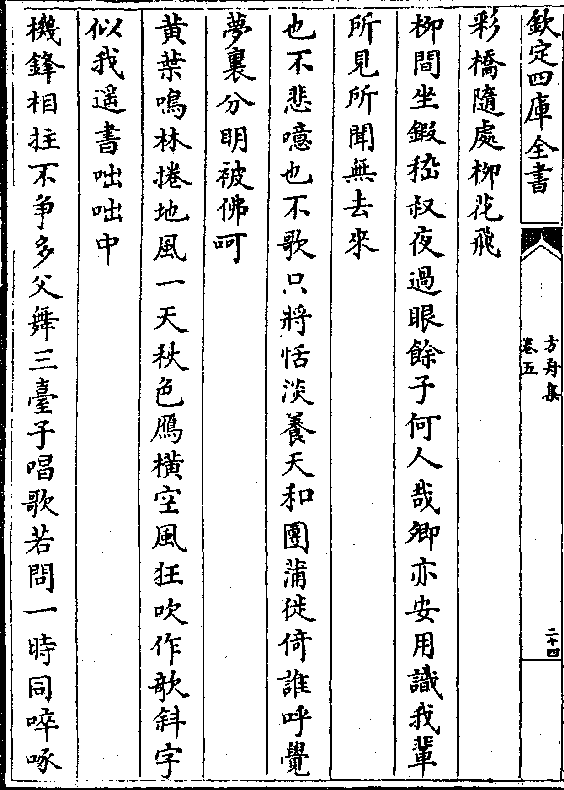 欽定四庫全書
方舟集
卷五
二十四
彩橋隨處柳花飛
柳間坐鍜嵇叔夜過眼餘子何人哉卿亦安用識我輩
所見所聞無去來
也不悲噫也不歌只將恬淡養天和團蒲徙倚誰呼覺
夢裏分明被佛呵
黄葉鳴林捲地風一天秋色鴈橫空風狂吹作欹斜字
似我遥書咄咄中
機鋒相拄不争多父舞三臺子唱歌若問一時同啐啄